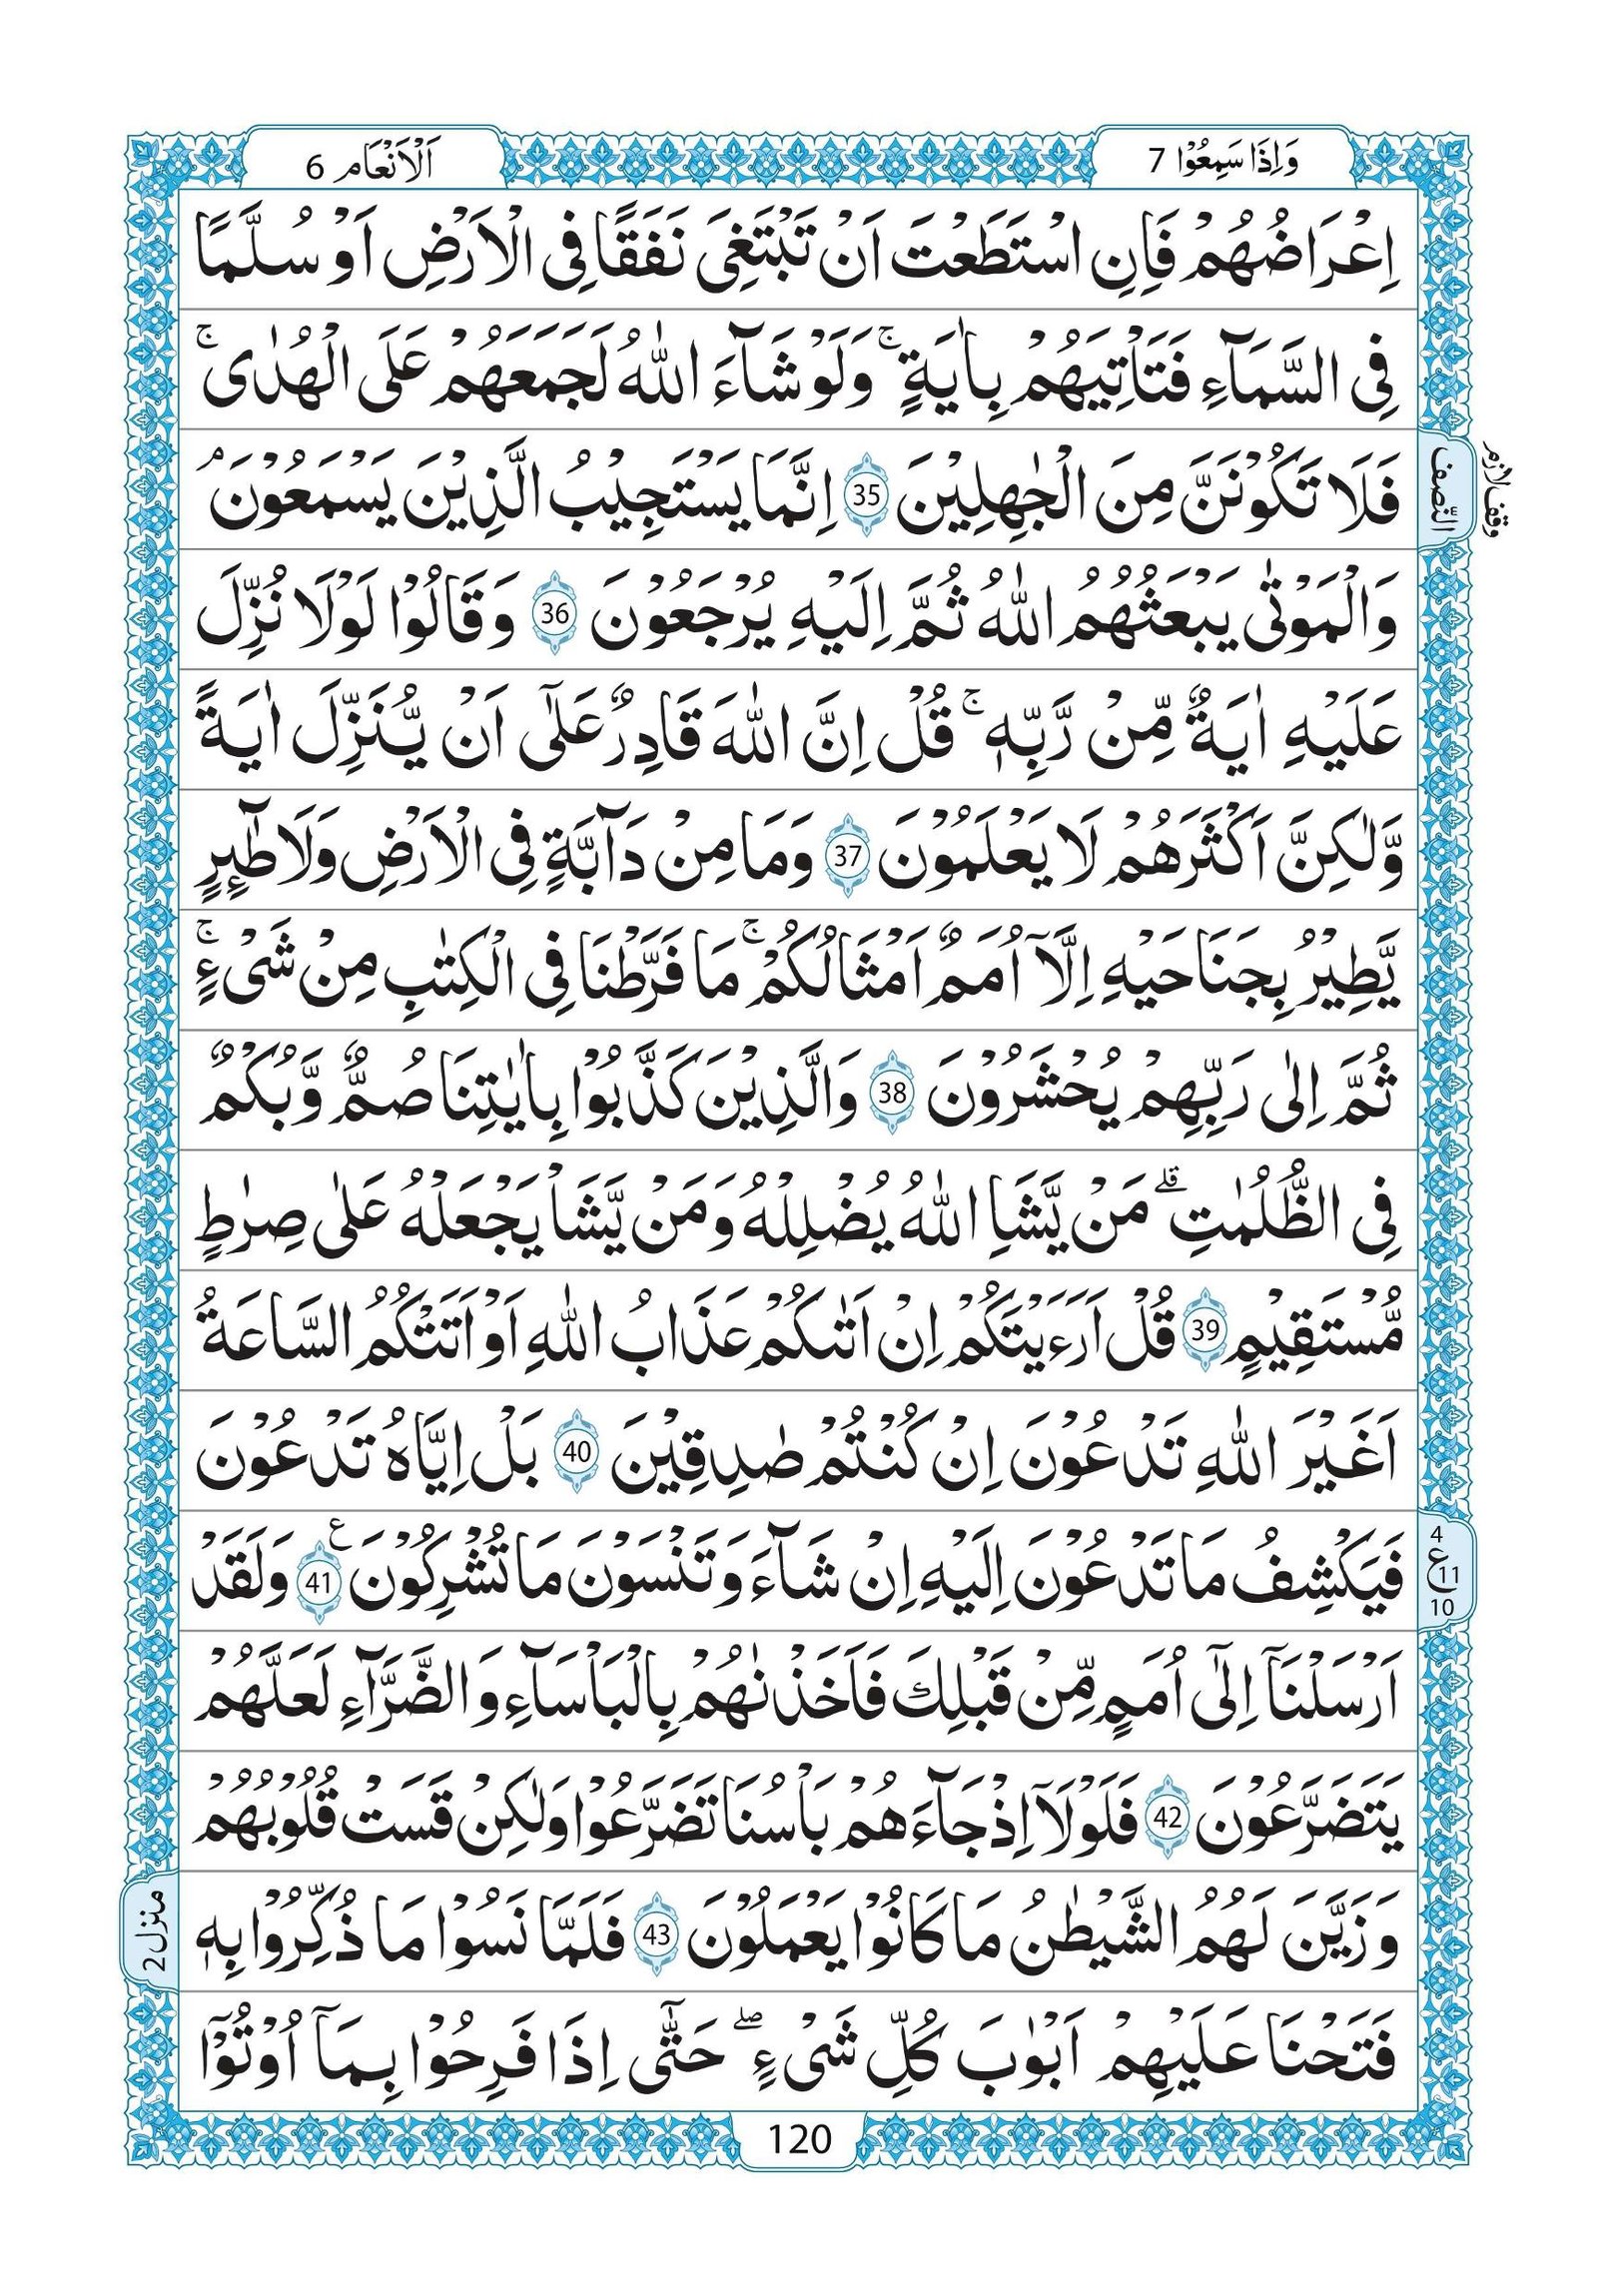 وَاِذَا سَمِعُوْا 7
اَلْاَنْعَام 6
اِعْرَاضُهُمْ فَاِنِ اسْتَطَعْتَ اَنْ تَبْتَغِیَ نَفَقًا فِی الْاَرْضِ اَوْ سُلَّمًا
فِی السَّمَآءِ فَتَاْتِیَهُمْ بِاٰیَةٍ ۚ وَلَوْ شَآءَ اللّٰهُ لَجَمَعَهُمْ عَلَی الْهُدٰی ۚ
فَلَا تَكُوْنَنَّ مِنَ الْجٰهِلِیْنَ 35 اِنَّمَا یَسْتَجِیْبُ الَّذِیْنَ یَسْمَعُوْنَ ۘ
النّصف
وقف لازم
وَالْمَوْتٰی یَبْعَثُهُمُ اللّٰهُ ثُمَّ اِلَیْهِ یُرْجَعُوْنَ 36 وَقَالُوْا لَوْلَا نُزِّلَ
عَلَیْهِ اٰیَةٌ مِّنْ رَّبِّهٖ ۚ قُلْ اِنَّ اللّٰهَ قَادِرٌ عَلٰۤی اَنْ یُّنَزِّلَ اٰیَةً
وَّلٰكِنَّ اَكْثَرَهُمْ لَا یَعْلَمُوْنَ 37 وَمَا مِنْ دَآبَّةٍ فِی الْاَرْضِ وَلَا طٰٓئِرٍ
یَّطِیْرُ بِجَنَاحَیْهِ اِلَّاۤ اُمَمٌ اَمْثَالُكُمْ ۚ مَا فَرَّطْنَا فِی الْكِتٰبِ مِنْ شَیْءٍ ۚ
ثُمَّ اِلٰی رَبِّهِمْ یُحْشَرُوْنَ 38 وَالَّذِیْنَ كَذَّبُوْا بِاٰیٰتِنَا صُمٌّ وَّبُكْمٌ
فِی الظُّلُمٰتِ ۗ مَنْ یَّشَاِ اللّٰهُ یُضْلِلْهُ وَمَنْ یَّشَاْ یَجْعَلْهُ عَلٰی صِرٰطٍ
مُّسْتَقِیْمٍ 39 قُلْ اَرَءَیْتَكُمْ اِنْ اَتٰىكُمْ عَذَابُ اللّٰهِ اَوْ اَتَتْكُمُ السَّاعَةُ
اَغَیْرَ اللّٰهِ تَدْعُوْنَ اِنْ كُنْتُمْ صٰدِقِیْنَ 40 بَلْ اِیَّاهُ تَدْعُوْنَ
فَیَكْشِفُ مَا تَدْعُوْنَ اِلَیْهِ اِنْ شَآءَ وَتَنْسَوْنَ مَا تُشْرِكُوْنَ ع 41 وَلَقَدْ
4
ع 11
10
اَرْسَلْنَاۤ اِلٰۤی اُمَمٍ مِّنْ قَبْلِكَ فَاَخَذْنٰهُمْ بِالْبَاْسَآءِ وَالضَّرَّآءِ لَعَلَّهُمْ
یَتَضَرَّعُوْنَ 42 فَلَوْلَاۤ اِذْ جَآءَهُمْ بَاْسُنَا تَضَرَّعُوْا وَلٰكِنْ قَسَتْ قُلُوْبُهُمْ
وَزَیَّنَ لَهُمُ الشَّیْطٰنُ مَا كَانُوْا یَعْمَلُوْنَ 43 فَلَمَّا نَسُوْا مَا ذُكِّرُوْا بِهٖ
منزل 2
فَتَحْنَا عَلَیْهِمْ اَبْوٰبَ كُلِّ شَیْءٍ ۖ حَتّٰۤی اِذَا فَرِحُوْا بِمَاۤ اُوْتُوْۤا
120